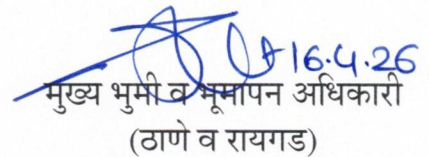 16.4.26
मुख्य भुमी व भूमापन अधिकारी
(ठाणे व रायगड)